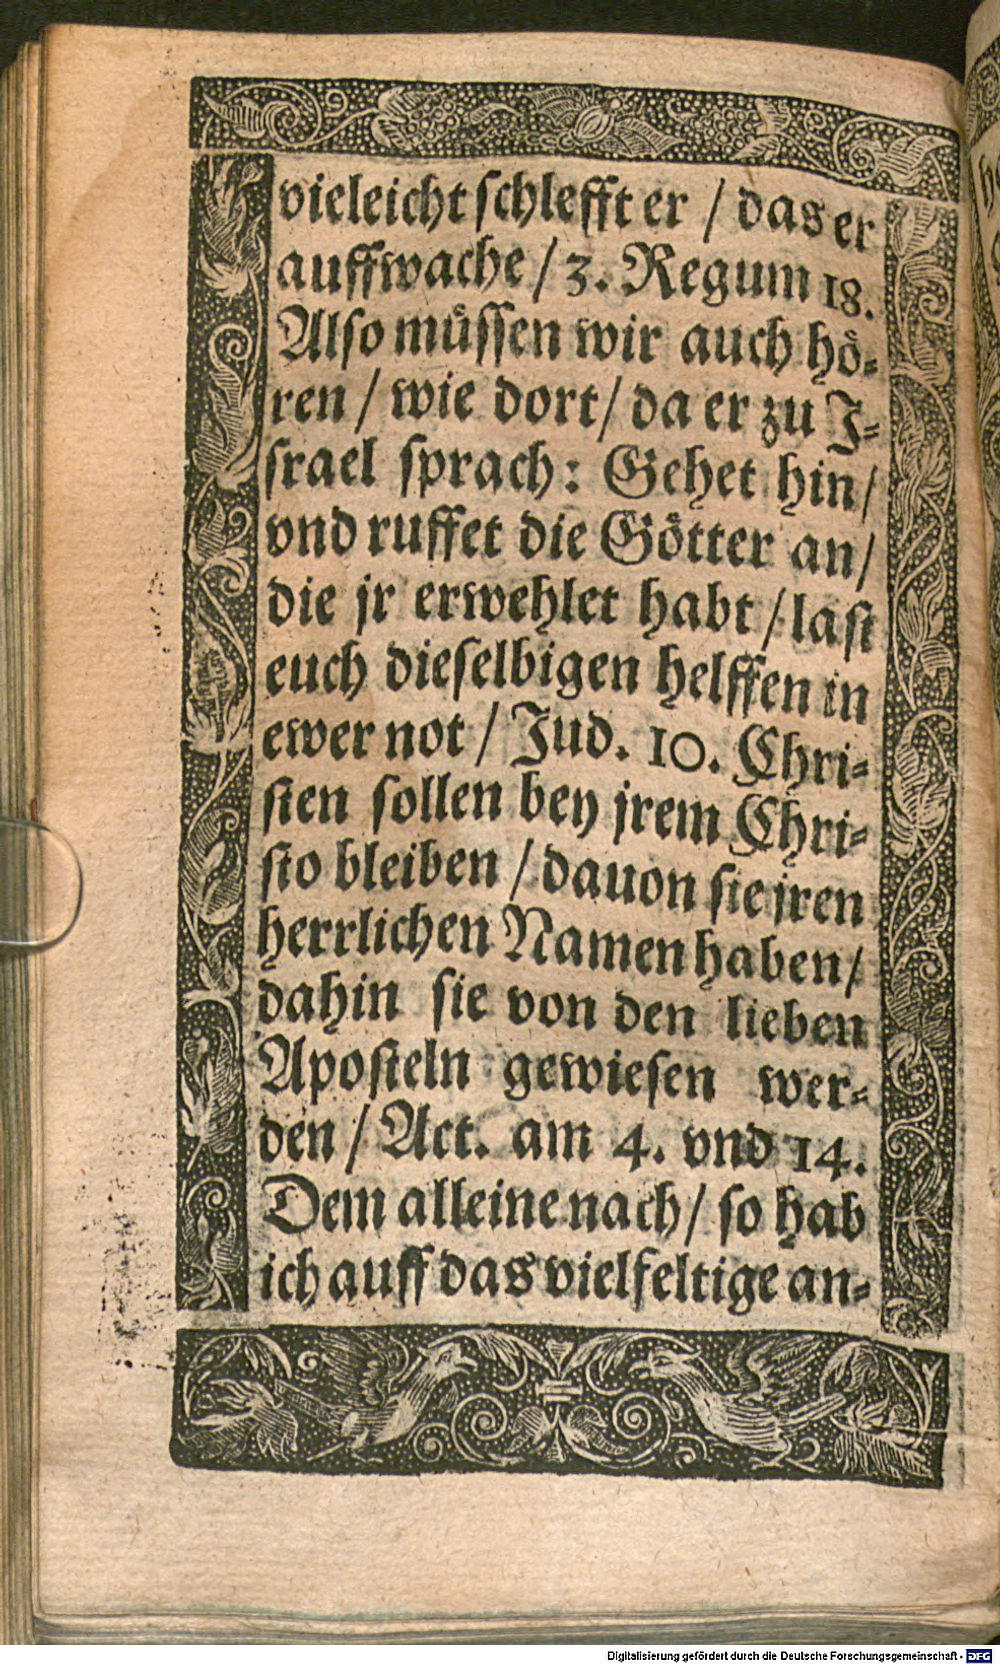 vieleicht schlefft er / das er
auffwache / 3. Regum 18.
Also müssen wir auch hö-
ren / wie dort / da er zu J-
srael sprach: Gehet hin /
vnd ruffet die Götter an /
die jr erwehlet habt / last
euch dieselbigen helffen in
ewer not / Jud. 10. Chri-
sten sollen bey jrem Chri-
sto bleiben / dauon sie jren
herrlichen Namen haben /
dahin sie von den lieben
Aposteln gewiesen wer-
den / Act. am 4. vnd 14.
Dem alleine nach / so hab
ich auff das vielfeltige an-
Digitalisierung gefördert durch die Deutsche Forschungsgemeinschaft - DFG